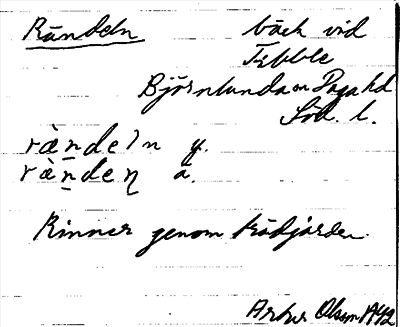 Rändeln bäck vid
Tebble
Björnlunda sn Daga hd
Söd. l.
rän̲deln y.
rän̲den ä.
Rinner genom trädgården.
Olsson 1942